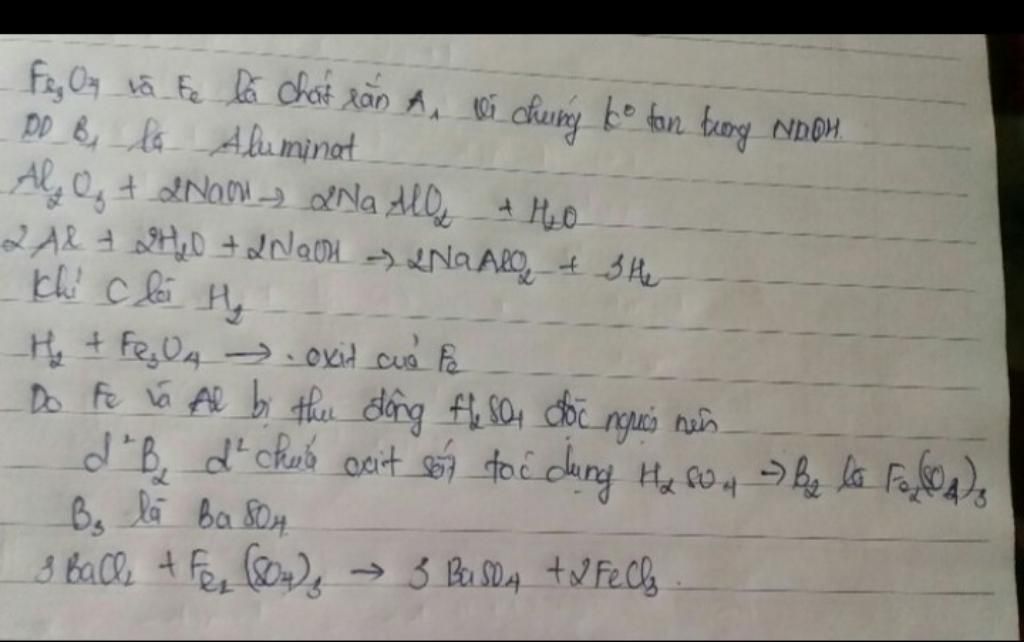 Fe₃O₄ và Fe là chất rắn A₁ vì chúng k⁰ tan trong NaOH.
DD B₁ là Aluminat
Al₂O₃ + 2NaOH → 2NaAlO₂ + H₂O
2Al + 2H₂O + 2NaOH → 2NaAlO₂ + 3H₂
Khí C là H₂
H₂ + Fe₃O₄ → oxit của Fe
Do Fe và Al bị thụ động H₂SO₄ đặc nguội nên
d² B₂ d² chứa oxit sắt tác dụng H₂SO₄ → B₂ là Fe₂(SO₄)₃
B₃ là BaSO₄
3BaCl₂ + Fe₂(SO₄)₃ → 3BaSO₄ + 2FeCl₃.